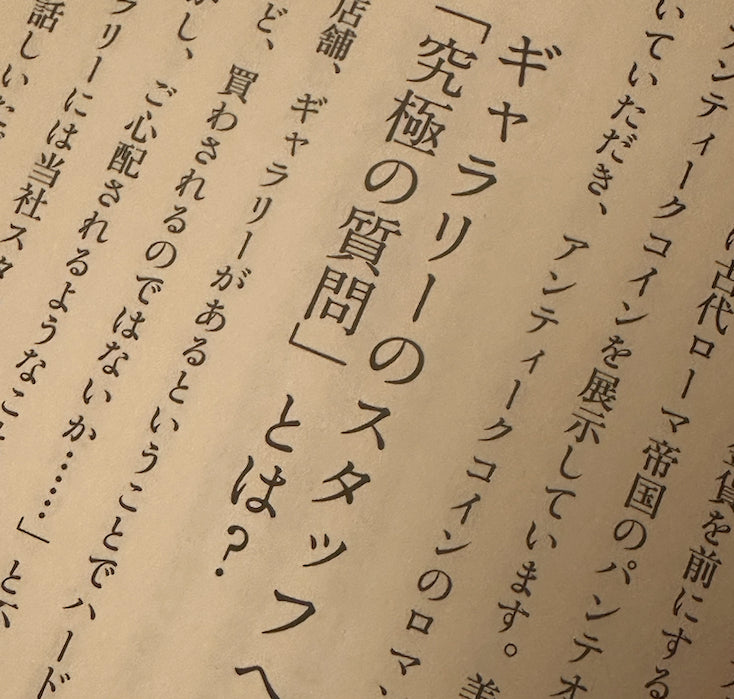 アンティークコイン
は古代ローマ帝国のパンテオ
金貨を前にする
いていただき、アンティークコインを展示しています。美
アンティークコインのロマ、
ギャラリーのスタッフへ
「究極の質問」とは?
店舗、ギャラリーがあるということでハード
ど、買わされるのではないか……」と
かし、ご心配されるようなこ
ラリーには当社スタ
話しいただ